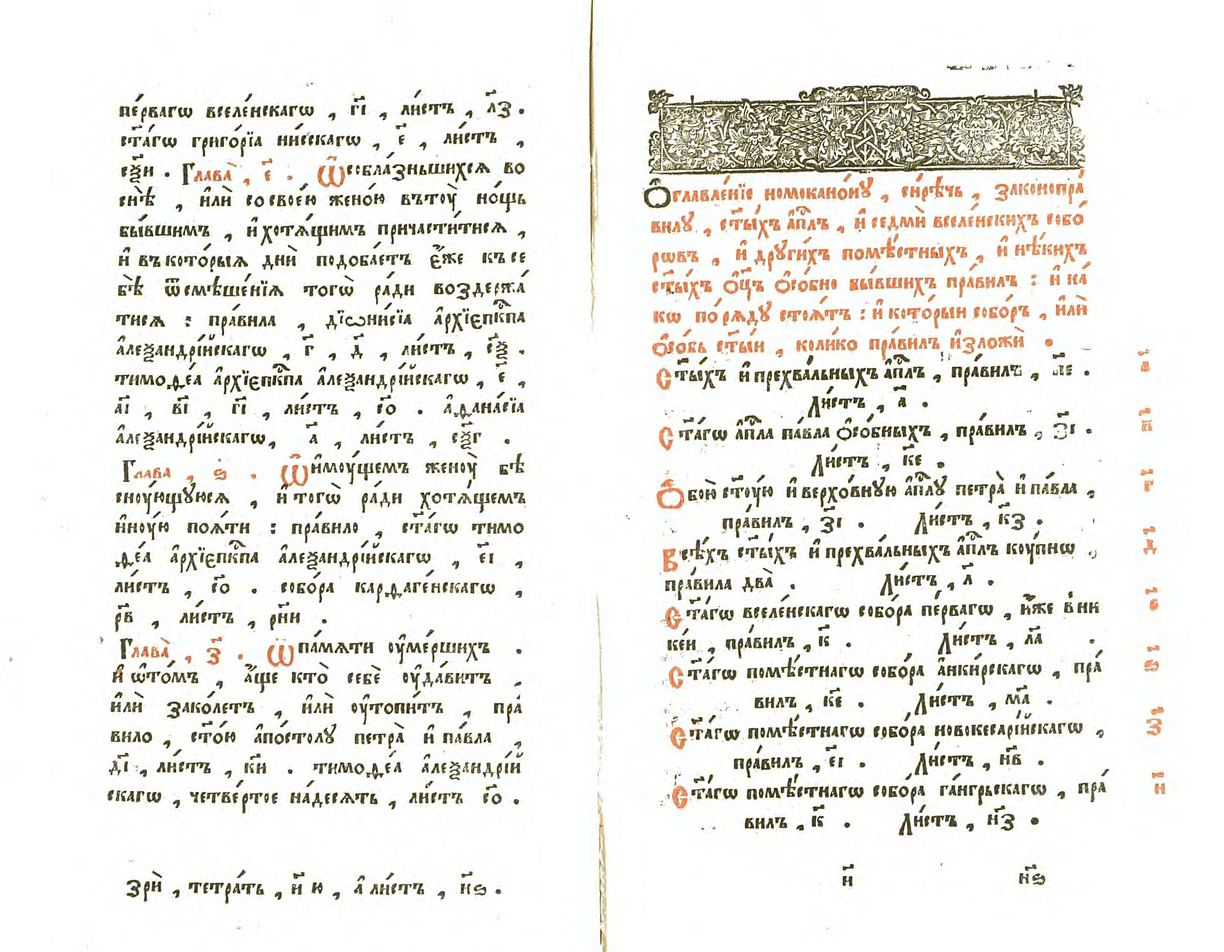 пе́рвагѡ вселе́нскагѡ , г҃і , ли́стъ , л҃з .
ст҃а́гѡ григо́рїа ни́сскагѡ , е҃ , ли́стъ ,
с҃ѯи . Глава̀ , е҃ . Ѿ собла́зньшихсѧ во
снѣ̀ , и҆лѝ со свое́ю жено́ю въ тоу̀ но́щь
бы́вшимъ , и҆ хотѧ́щимъ причасти́тисѧ ,
и҆ въ кото́рыѧ днѝ подоба́етъ є҆́же къ се
бѣ̀ ѿ смѣше́нїѧ тогѡ̀ ра́ди воздержа́
тисѧ : пра́вила , дїѡни́сїа а҆рхїєпк҃па
а҆леѯандрі́йскагѡ , г҃ , д҃ , ли́стъ , с҃ѯ .
тимоѳе́а а҆рхїєпк҃па а҆леѯандрі́йскагѡ , е҃ ,
а҃і , в҃і , г҃і , ли́стъ , с҃о . а҆ѳана́сїа
а҆леѯандрі́йскагѡ , а҃ , ли́стъ , с҃ѯг .
Глава , ѕ҃ . Ѿ и҆моу́щемъ женоу̀ бѣ
сноу́ющуюсѧ , и҆ тогѡ̀ ра́ди хотѧ́щемъ
и҆ноу́ю поѧ́ти : пра́вило , ст҃а́гѡ тимо
ѳе́а а҆рхїєпк҃па а҆леѯандрі́йскагѡ , е҃і ,
ли́стъ , с҃о . собо́ра карѳаге́нскагѡ ,
р҃в , ли́стъ , р҃ни .
Глава̀ , з҃ . Ѿ па́мѧти оу҆ме́ршихъ .
и҆ ѡ҆ то́мъ , а҆́ще кто̀ себѐ оу҆да́витъ
и҆лѝ зако́летъ , и҆лѝ оу҆то́питъ , пра́
вило , ст҃о́ю а҆по́столу петра̀ и҆ па́вла ,
д҃і , ли́стъ , к҃и . тимоѳе́а а҆леѯандрі́й
скагѡ , четве́ртое на́десѧть , ли́стъ с҃о .
Зрѝ , тетра́ть , и҃ ю , а҆ ли́стъ , н҃ѕ .
Ѻ҆главле́нїе номокано́нꙋ , си́рѣчь , законопра́
вилꙋ , ст҃ы́хъ а҆пл҃ъ , и҆ седмѝ вселе́нскихъ собо́
рѡвъ , и҆ други́хъ помѣ́стныхъ , и҆ нѣ́кихъ
ст҃ы́хъ ѻ҆ц҃ъ ѻ҆со́бно бы́вшихъ пра́вилъ : и҆ ка́
кѡ по рѧ́дꙋ стоѧ́тъ : и҆ кото́рыи собо́ръ , и҆лѝ
ѻ҆со́бь ст҃ы́и , коли́ко пра́вилъ и҆зложѝ .
Ст҃ы́хъ и҆ прехва́льныхъ а҆пл҃ъ , пра́вилъ , п҃е . а҃
Ли́стъ , а҃ .
Ст҃а́гѡ а҆пл҃а па́вла ѻ҆со́бныхъ , пра́вилъ , з҃і . в҃
Ли́стъ , к҃е .
Ѻ҆бою̀ ст҃оу́ю и҆ верхо́внꙋю а҆пл҃ꙋ петра̀ и҆ па́вла , г҃
пра́вилъ , з҃і . Ли́стъ , к҃з .
Всѣ́хъ ст҃ы́хъ и҆ прехва́льныхъ а҆пл҃ъ коу́пнѡ , д҃
пра́вила два̀ . Ли́стъ , л҃ .
Ст҃а́гѡ вселе́нскагѡ собо́ра пе́рвагѡ , и҆́же в ни е҃
ке́и , пра́вилъ , к҃ . Ли́стъ , л҃а .
Ст҃а́гѡ помѣ́стнагѡ собо́ра а҆нки́рскагѡ , пра́ ѕ҃
вилъ , к҃е . Ли́стъ , м҃а .
Ст҃а́гѡ помѣ́стнагѡ собо́ра новокесарі́йскагѡ , з҃
пра́вилъ , е҃і . Ли́стъ , н҃в .
Ст҃а́гѡ помѣ́стнагѡ собо́ра га́нгрьскагѡ , пра́ и҃
вилъ , к҃ . Ли́стъ , н҃з .
и҃ н҃ѕ